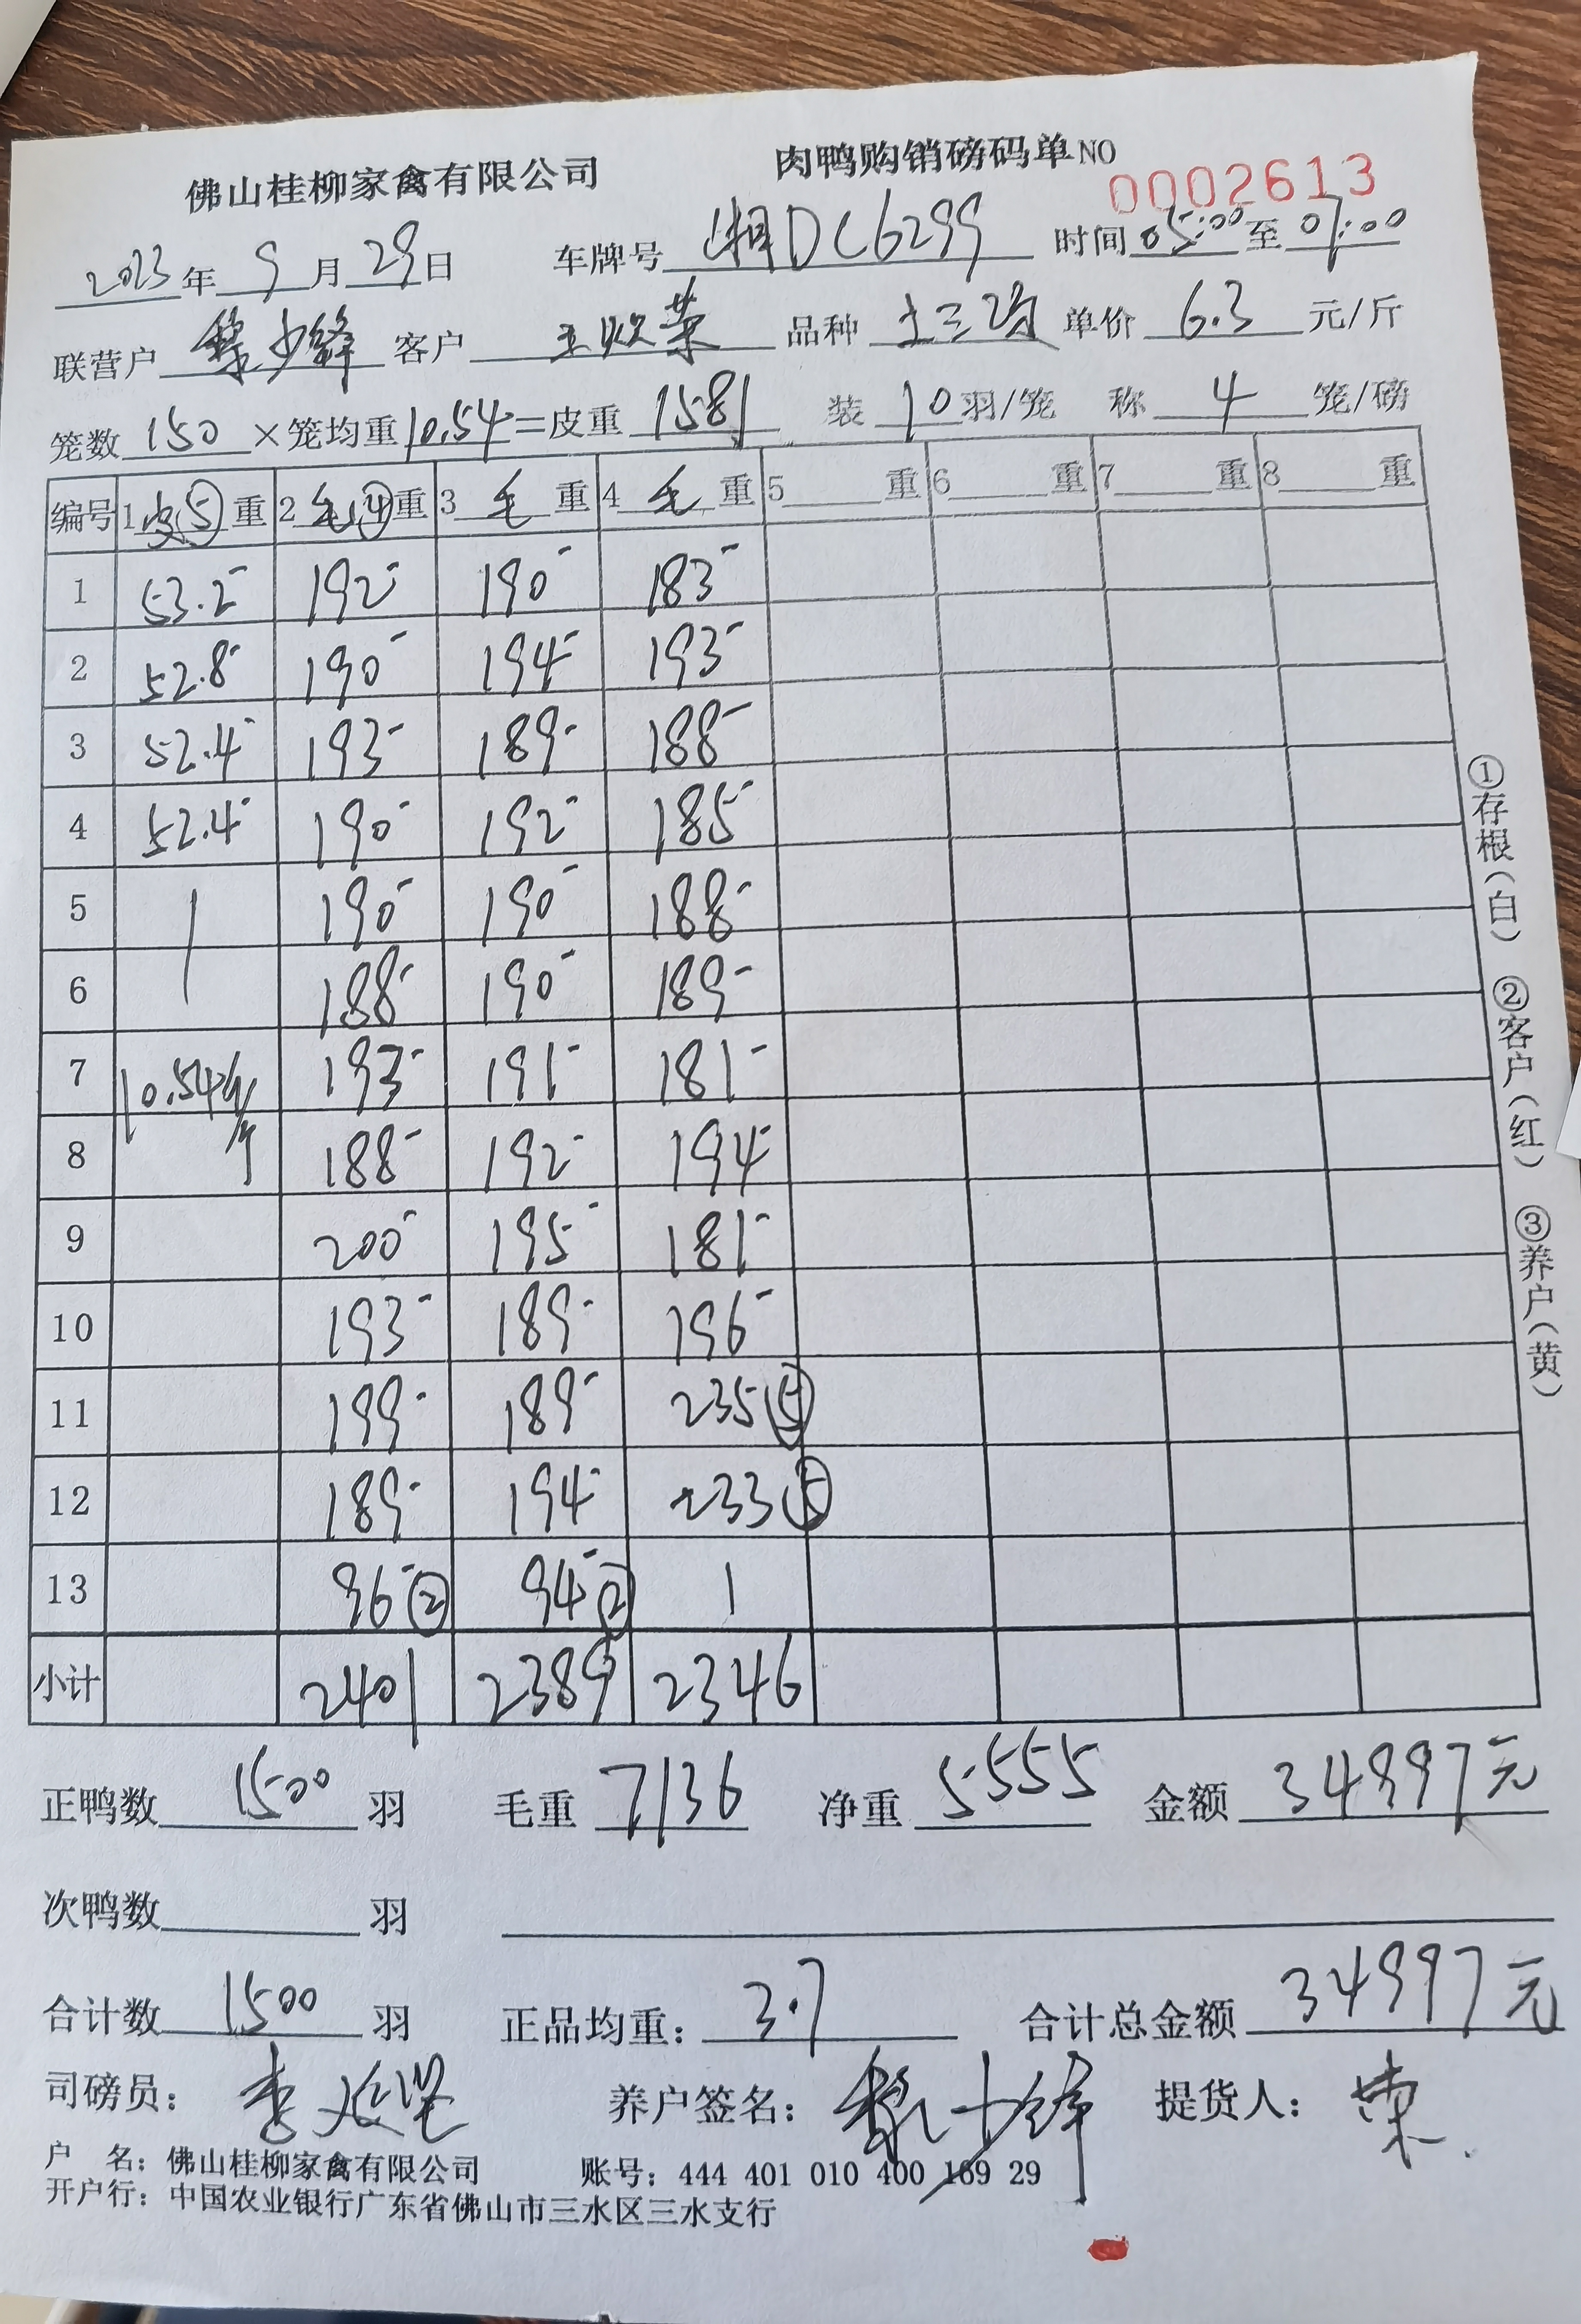 佛山桂柳家禽有限公司 肉鸭购销磅码单 NO 0002613
2023年 9月 29日 车牌号 湘DC6299 时间 05:00 至 07:00
联营户 黎少锋 客户 王欢荣 品种 土三鸡 单价 6.3 元/斤
笼数 150 ×笼均重 10.54 =皮重 1581 装 10 羽/笼 称 4 笼/磅
编号 1 皮⑤重 2 毛④重 3 毛 重 4 毛 重 5 重 6 重 7 重 8 重
1 53.2- 192- 190- 183-
2 52.8- 190- 194- 193-
3 52.4- 193- 189- 188-
4 52.4- 190- 192- 185-
5 190- 190- 188-
6 188- 190- 189-
7 10.54斤/个 193- 191- 181-
8 188- 192- 194-
9 200- 195- 181-
10 193- 189- 196-
11 199- 189- 235⑤
12 189- 194- 233⑤
13 96-② 94-②
小计 2401 2389 2346
正鸭数 1500 羽 毛重 7136 净重 5555 金额 34997元
次鸭数 羽
合计数 1500 羽 正品均重: 3.7 合计总金额 34997元
司磅员: 养户签名: 黎少锋 提货人: 荣
户 名: 佛山桂柳家禽有限公司 账号: 444 401 010 400 169 29
开户行: 中国农业银行广东省佛山市三水区三水支行
①存根(白) ②客户(红) ③养户(黄)